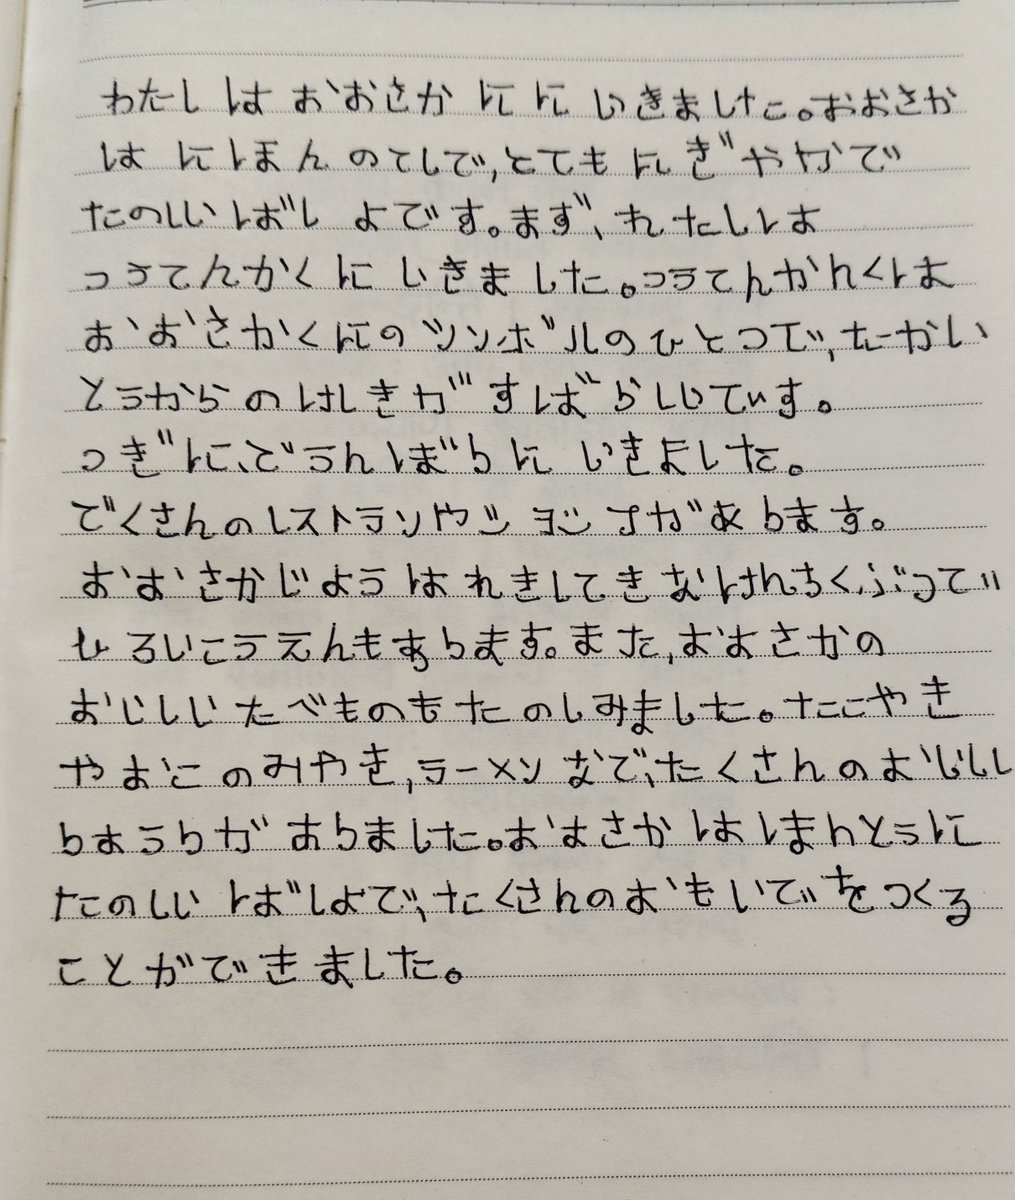 わたしは おおさか にに いきました。おおさか
は にほん のてしで,とても にぎやかで
たのしい ばしよです。まず、わたしは
つうてんかくに いきました。つうてんかんくは
おおさかくにの ツンボルの ひとつで,たーかい
とうからの けしきが すばらしいでいす。
つぎに、どうんぼりに いきました。
でくさんのレストランやショジンプがあります。
おおさかじようは れきしてきな けんちくぶつでい
ひろいこうえんもあります。また,おおさかの
おいしい たべものもたのしみました。たこやき
やおこのみやき,ラーメンなで、たくさんのおいしい
りょうりが ありました。おおさかは ほまんとうに
たのしい ばしよで、たくさんのおもいでをつくる
ことができました。